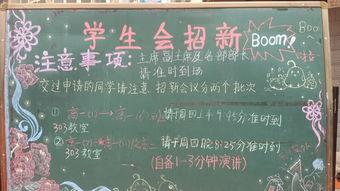 学生会招新
Boom!
Boo
注意事项:
主席副主席及各部部长
请准时到场
交过申请的同学请注意 招新会议分两个批次
① 高一(1)→高一( )班 请于周四 准时到
303教室
② 高一( ) 请于周四 8:25分准时到
303教室
(自备1-3分钟演讲)